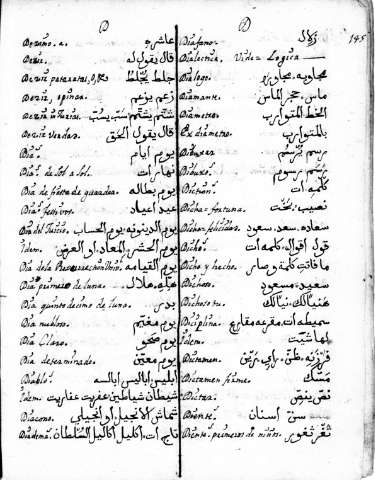 D
Dezimo. a. عاشره
Dezir. قال يقول له
Dezir pataratas, جلط يجلط
Dezir, opinar. زعم يزعم
Dezir injurias شتم يشتم سب يسب
Dezir verdad. قال يقول الحق
Dia. يوم ايام
Dia. de sol a sol. نهار ات
Dia de fiesta de guardar. يوم بطاله
Dia. festivos. عيد اعياد
Dia del Juizio. يوم الدينونه يوم الحساب
Idem. يوم الحشر المعاد او العرض
Dia dela Resurreccion يوم القيامه
Dia primero de luna. هله هلال
Dia quinto decimo de luna. بدر
Dia nubloso. يوم مغيم
Dia Claro. يوم صحو
Dia determinado. يوم معين
Diablo. ابليس اباليس ابالسه
Idem. شيطان شياطين عفريت عفاريت
Diacono. شماس الانجيل او انجيلي
Diadema. تاج ات اكليل اكاليل السلطان
D
145
Diafano. زلال
Dialectica. Vide Logica
Dialogo. مجاوبه
Diamante. ماس حجر الماس
Diametro. الخط المتوارب
Ex diametro. بالمتوارب
Dibuxar رسم يرسم
Dibuxo. رسم رسوم
كلمه ات
Dicha = fortuna. نصيب بخت
Dicha = felicidad. سعاده سعد سعود
Dicho. قول اقوال كلمه ات
Dicho y hecho. ما فات كلمة وصار
Dichoso. سعيد مسعود
Dichoso tu. هنيالك نيالك
Diciplina.
Idem.
Dictamen. ظن راي
Dictamen firme. مسك
Dictar. نص ينص
Diente. سن اسنان
Diente primeros de niños. ثغر ثغور